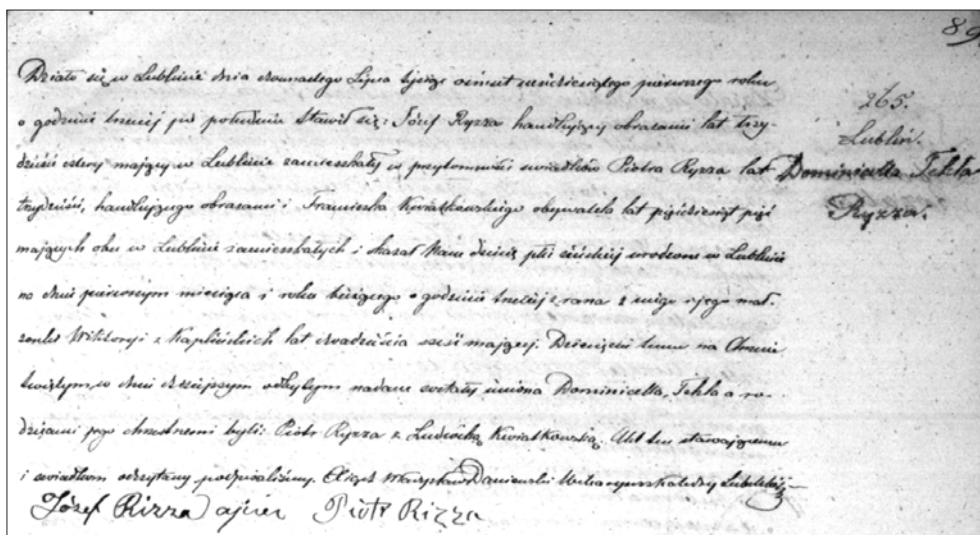 89
265.
Lublin.
Dominicella Tekla
Ryzza.
Działo się w Lublinie dnia dwunastego Lipca tysiąc ośmset sześćdziesiątego pierwszego roku
o godzinie trzeciej po południu Stawił się: Józef Ryzza handlujący obrazami lat trzy-
dzieści cztery mający w Lublinie zamieszkały w przytomności swiadków Piotra Ryzza lat
trzydzieści, handlującego obrazami i Franciszka Kwiatkowskiego obywatela lat pięćdziesiąt pięć
mających obu w Lublinie zamieszkałych i okazał Nam dziecię płci żeńskiej urodzone w Lublinie
na dniu pierwszym miesiąca i roku bieżącego o godzinie trzeciej z rana z niego i jego mał-
żonki Wiktoryi z Kaplińskich lat dwadzieścia sześć mającej. Dziecięciu temu na Chrzcie
świętym, w dniu dzisiejszym odbytym nadane zostały imiona Dominicella, Tekla a ro-
dzicami jego chrzestnemi byli: Piotr Ryzza z Ludwiką Kwiatkowską. Akt ten stawającemu
i swiadkom odczytany podpisaliśmy. Władysław Daniewski Wikaryusz Katedry Lubelskiej
Józef Rizza ojciec Piotr Rizza